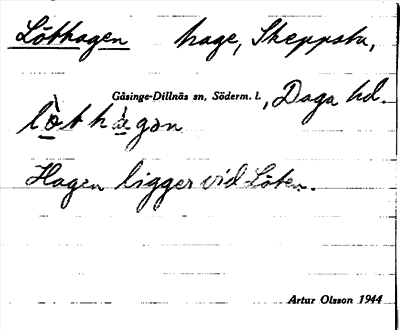 Löthagen hage, Skeppsta,
Gåsinge-Dillnäs sn, Söderm. l., Daga hd.
lö̀thàgən
Hagen ligger vid Löten.
Artur Olsson 1944